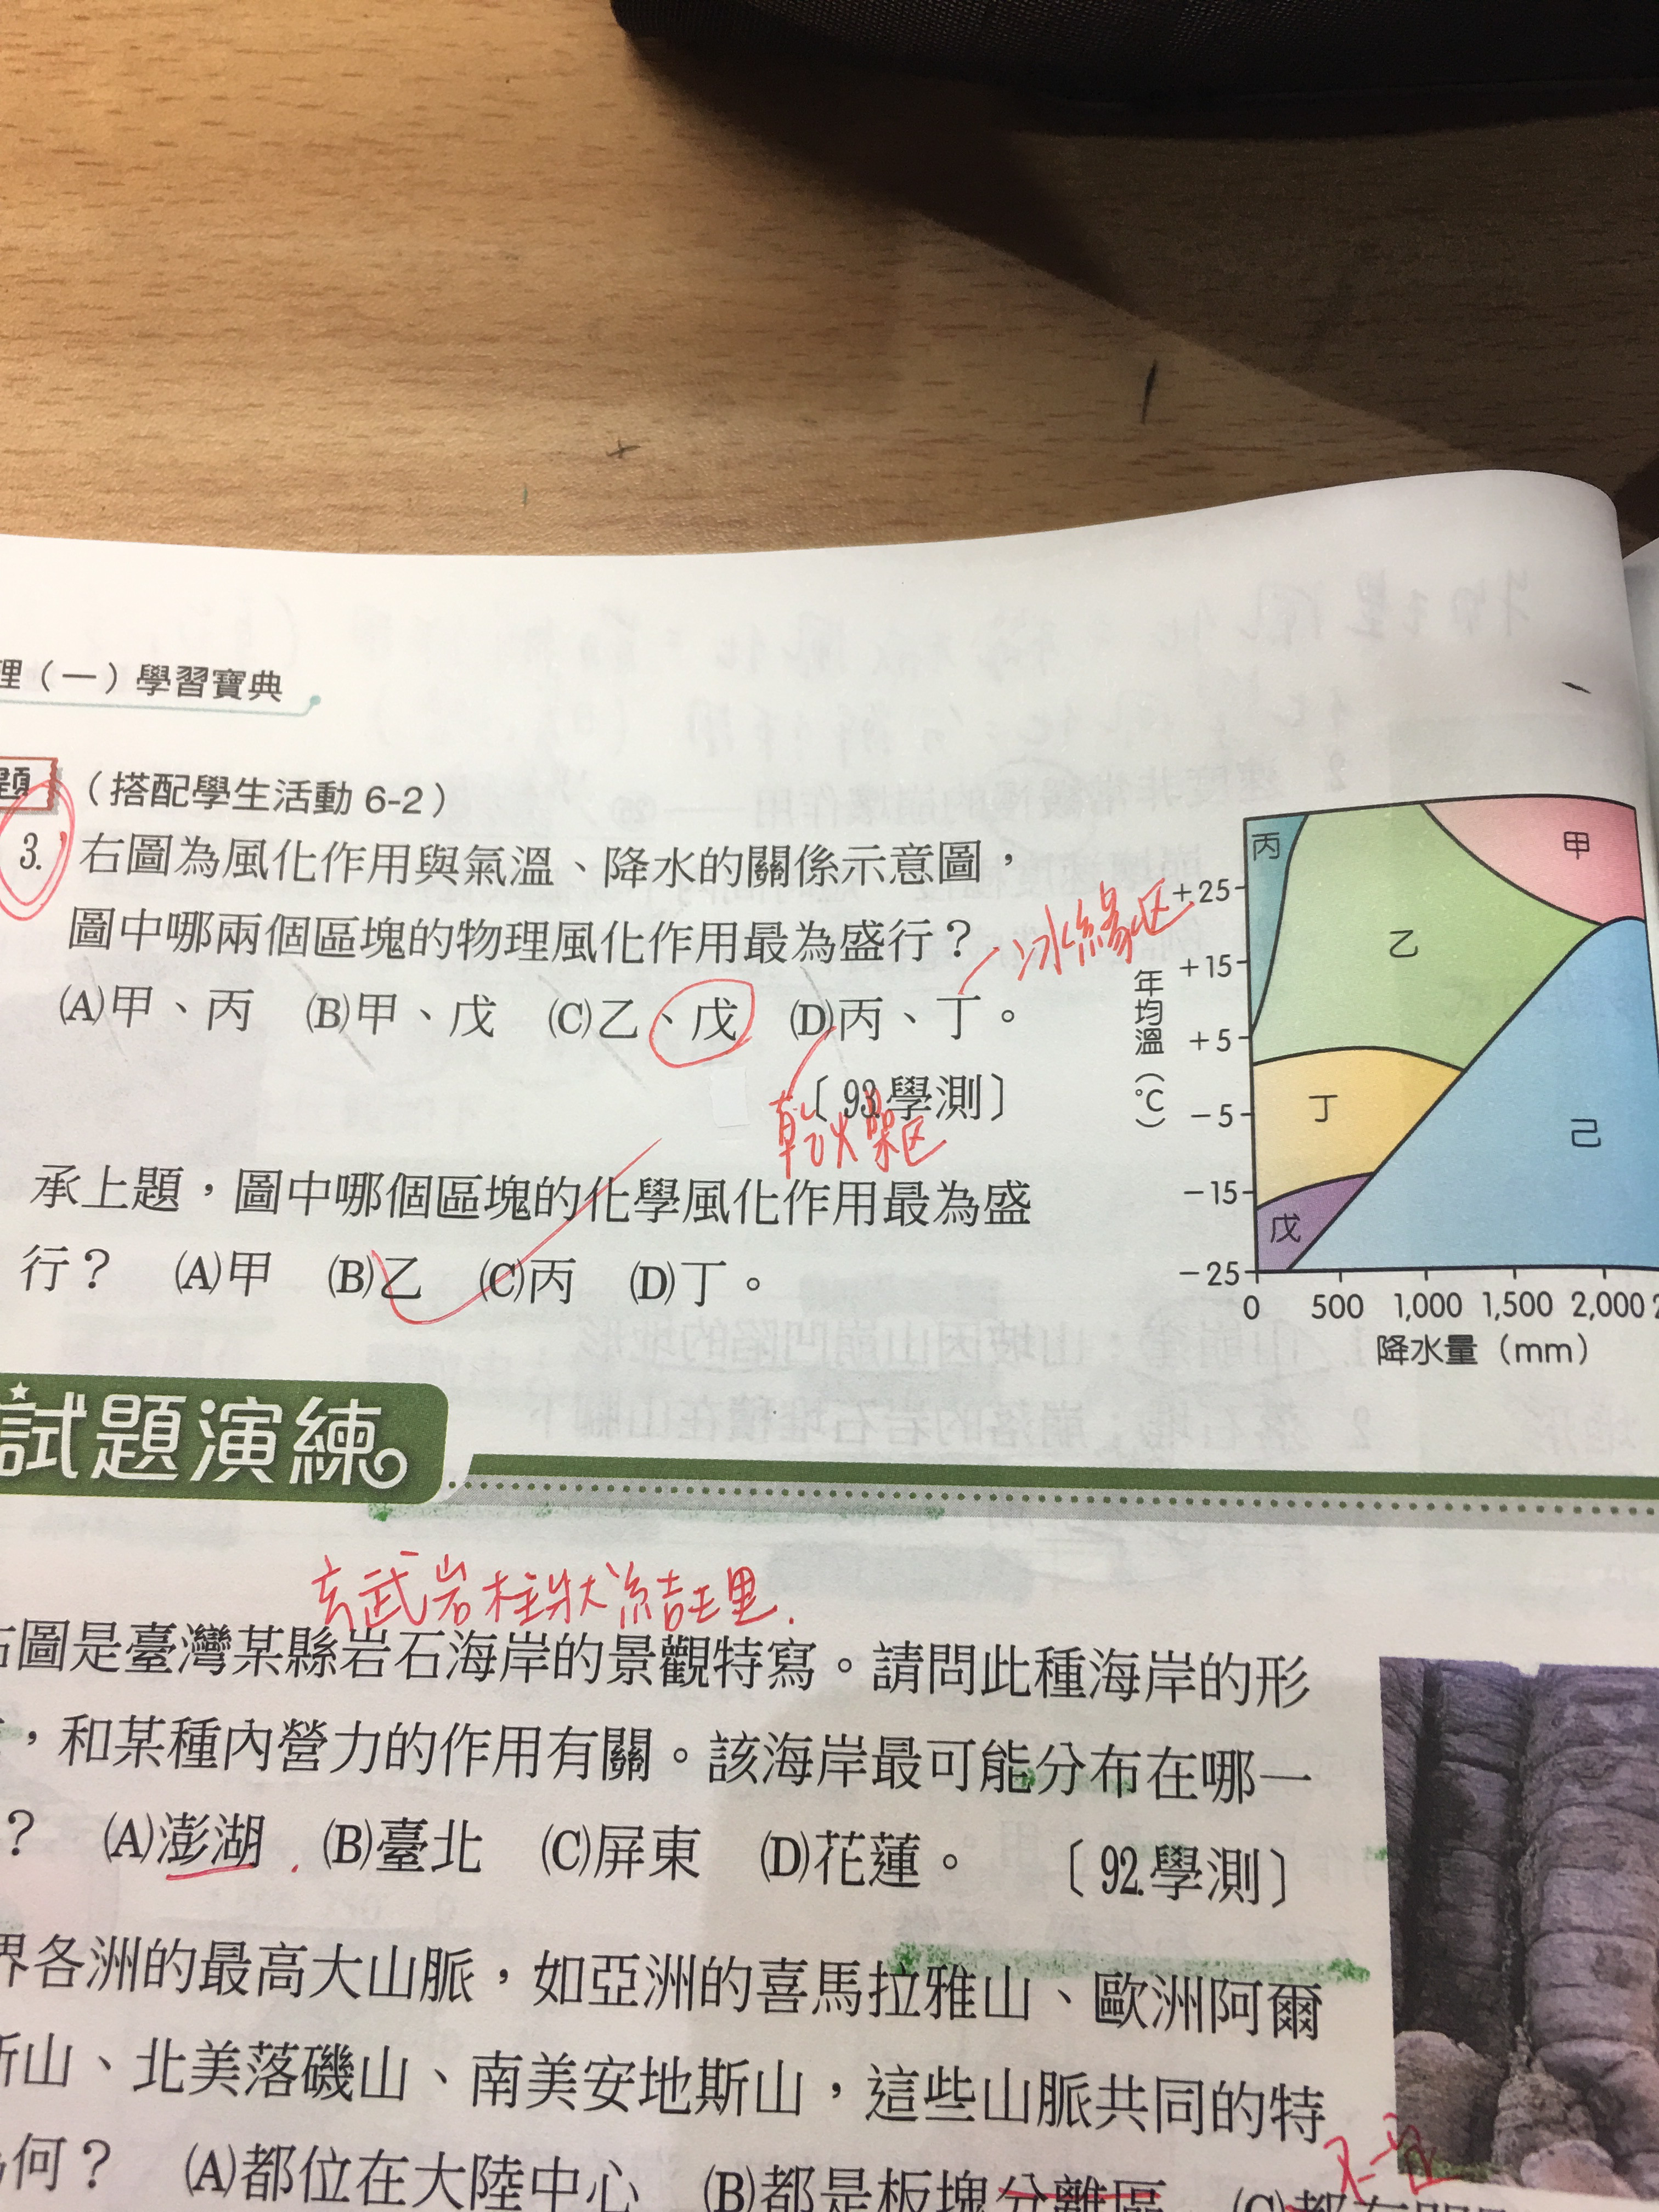 理（一）學習寶典
題（搭配學生活動 6-2）
3. 右圖為風化作用與氣溫、降水的關係示意圖，
圖中哪兩個區塊的物理風化作用最為盛行？
冰緣区
(A)甲、丙 (B)甲、戊 (C)乙、戊 (D)丙、丁。
〔93.學測〕
乾燥区
承上題，圖中哪個區塊的化學風化作用最為盛
行？ (A)甲 (B)乙 (C)丙 (D)丁。
丙
甲
乙
丁
己
戊
年均溫（℃）
+25
+15
+5
−5
−15
−25
0 500 1,000 1,500 2,000
降水量（mm）
試題演練
玄武岩柱狀節理.
右圖是臺灣某縣岩石海岸的景觀特寫。請問此種海岸的形
，和某種內營力的作用有關。該海岸最可能分布在哪一
？ (A)澎湖 (B)臺北 (C)屏東 (D)花蓮。 〔92.學測〕
界各洲的最高大山脈，如亞洲的喜馬拉雅山、歐洲阿爾
斯山、北美落磯山、南美安地斯山，這些山脈共同的特
何？ (A)都位在大陸中心 (B)都是板塊分離區
不一定